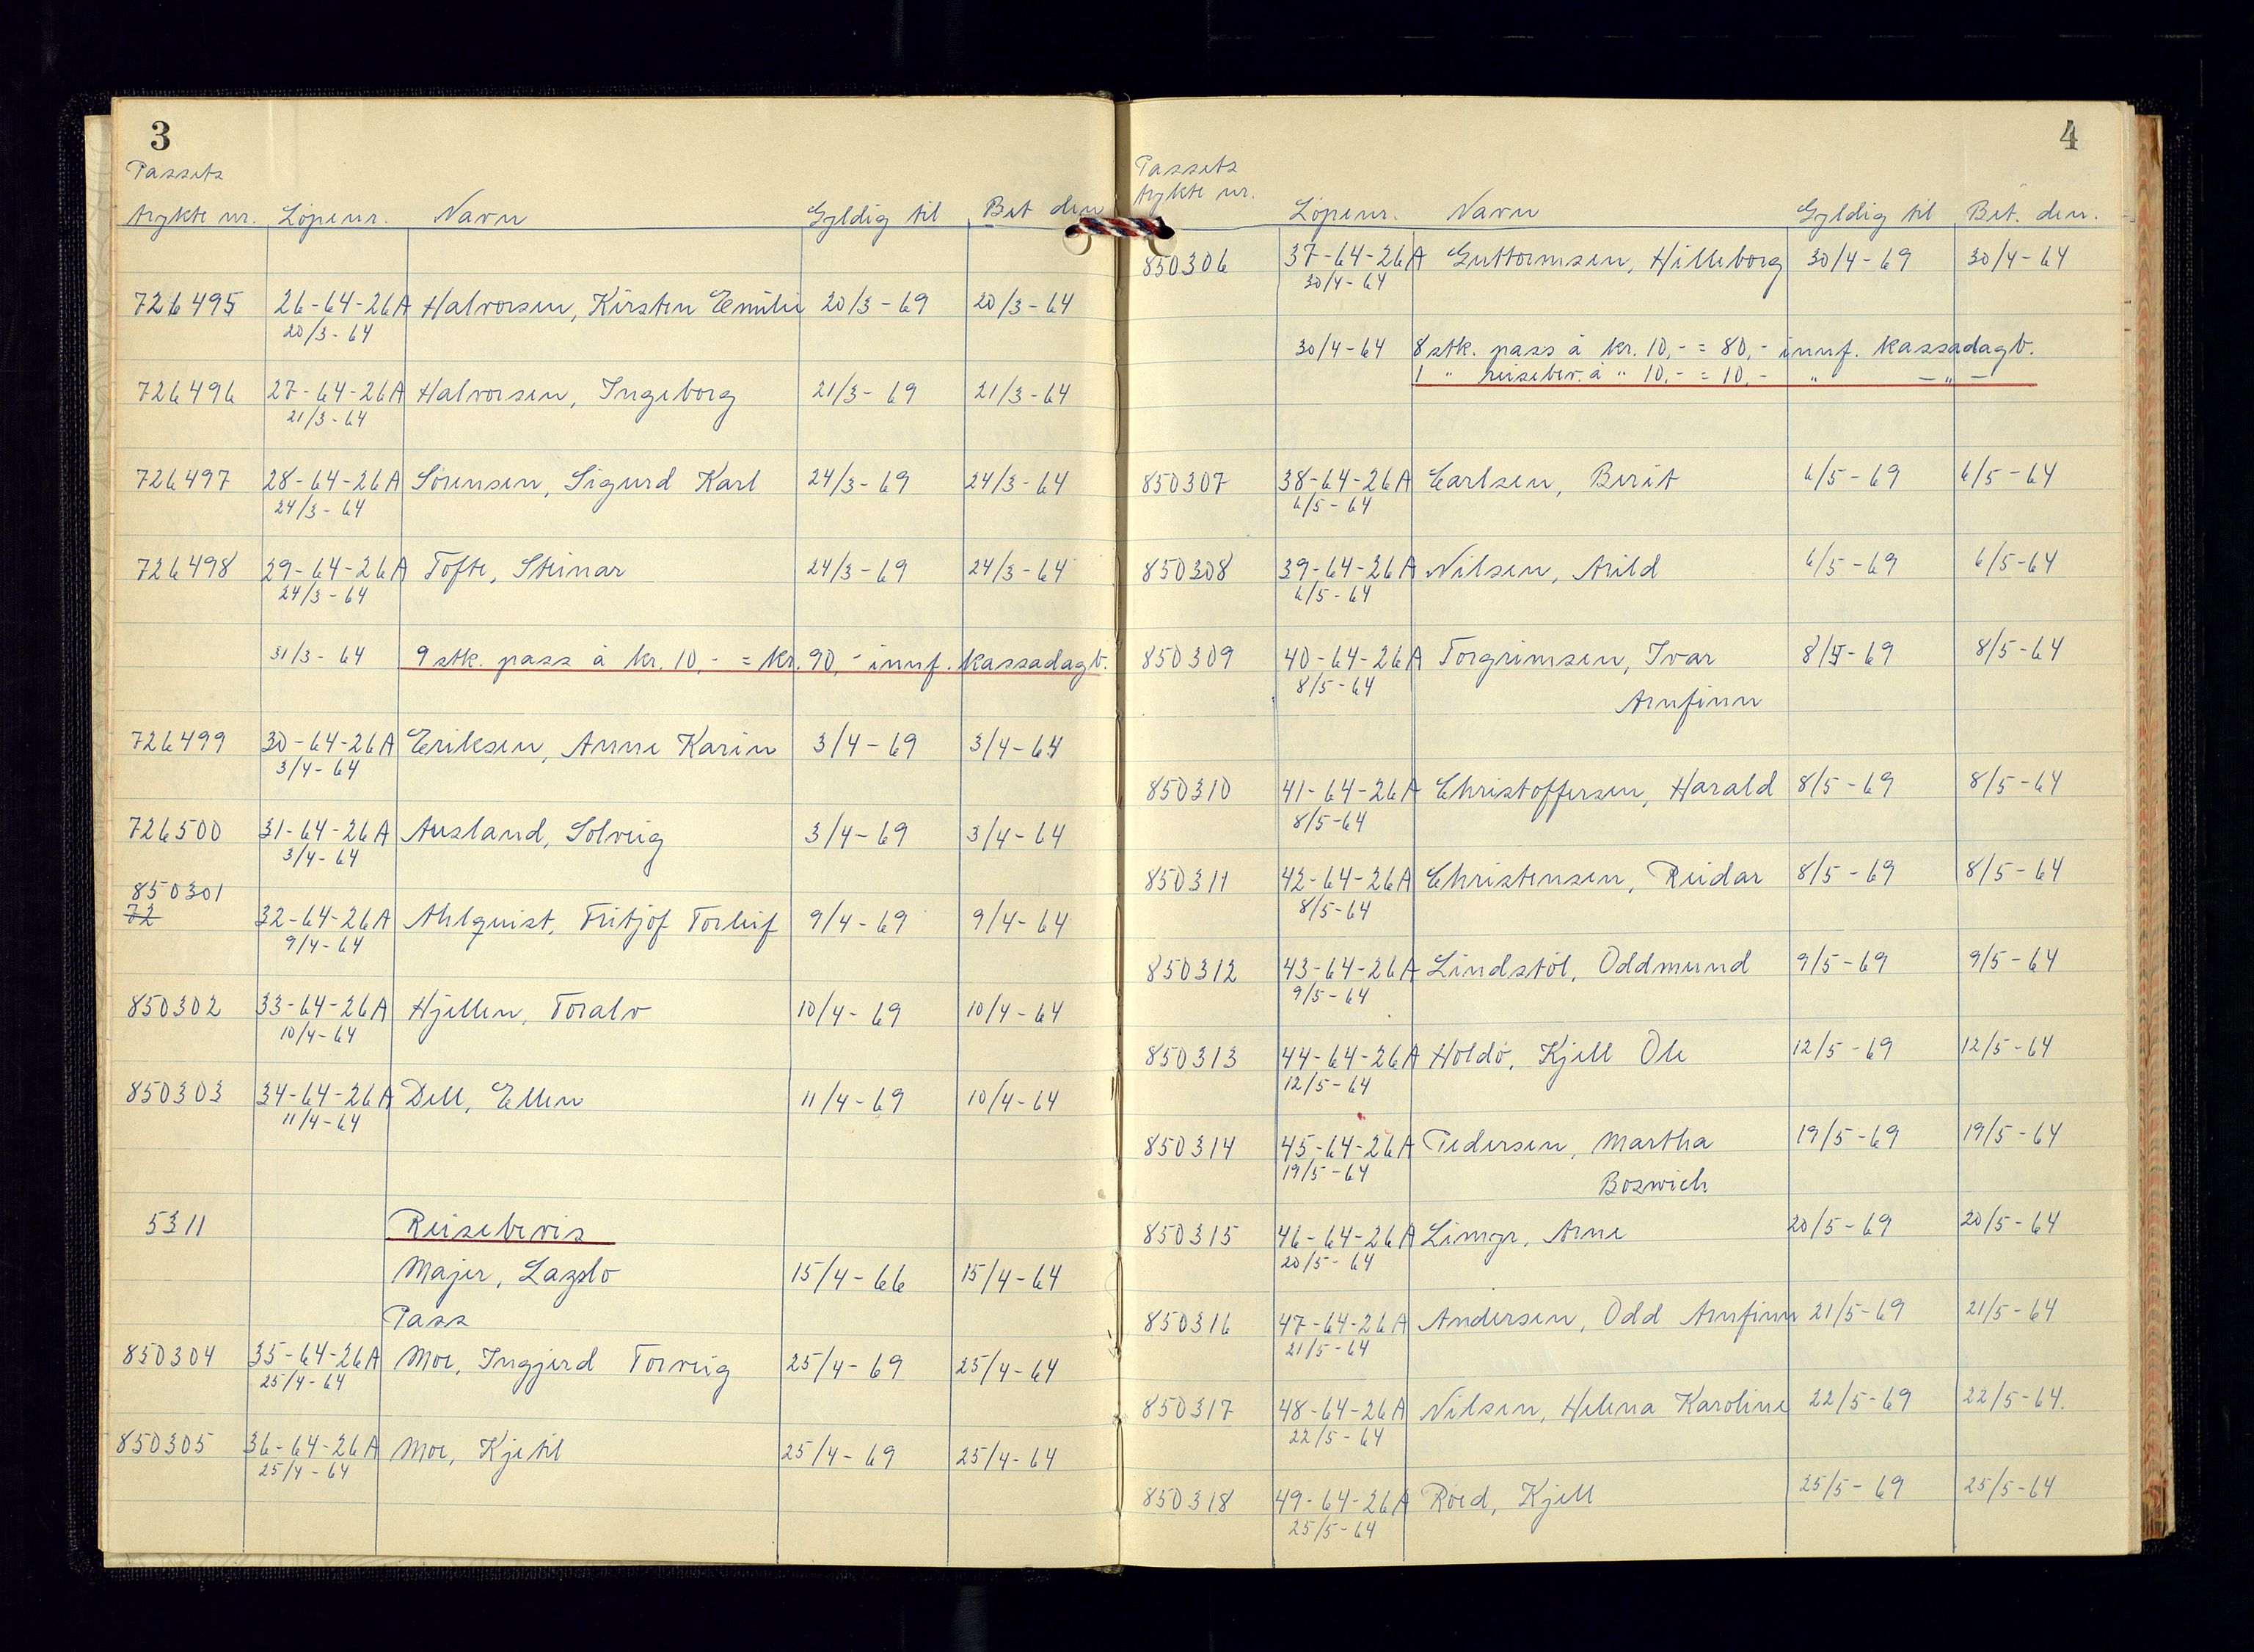 3
Passets
trykte nr. Löpenr. Navn Gyldig til Bet den
726495 26-64-26A Halvorsen, Kirsten Emilie 20/3-69 20/3-64
20/3-64
726496 27-64-26A Halvorsen, Ingeborg 21/3-69 21/3-64
21/3-64
726497 28-64-26A Sörensen, Sigurd Karl 24/3-69 24/3-64
24/3-64
726498 29-64-26A Tofte, Steinar 24/3-69 24/3-64
24/3-64
31/3-64 9 stk. pass à kr. 10,- = kr. 90,- innf. kassadagb.
726499 30-64-26A Eriksen, Anne Karin 3/4-69 3/4-64
3/4-64
726500 31-64-26A Ausland, Solveig 3/4-69 3/4-64
3/4-64
850301
72 32-64-26A Ahlquist, Fritjof Torleif 9/4-69 9/4-64
9/4-64
850302 33-64-26A Hjellen, Toralv 10/4-69 10/4-64
10/4-64
850303 34-64-26A Dell, Ellen 11/4-69 10/4-64
11/4-64
5311 Reisebevis
Majer, Lazslo 15/4-66 15/4-64
Pass
850304 35-64-26A Moe, Ingjerd Torveig 25/4-69 25/4-64
25/4-64
850305 36-64-26A Moe, Kjetil 25/4-69 25/4-64
25/4-64
4
Passets
trykte nr. Löpenr. Navn Gyldig til Bet. den.
850306 37-64-26A Guttormsen, Hilleborg 30/4-69 30/4-64
30/4-64
30/4-64 8 stk. pass à kr. 10,- = 80,- innf. kassadagb.
1 " reisebev. à " 10,- = 10,- " -"-
850307 38-64-26A Carlsen, Berit 6/5-69 6/5-64
6/5-64
850308 39-64-26A Nilsen, Arild 6/5-69 6/5-64
6/5-64
850309 40-64-26A Torgrimsen, Ivar 8/5-69 8/5-64
8/5-64 Arnfinn
850310 41-64-26A Christoffersen, Harald 8/5-69 8/5-64
8/5-64
850311 42-64-26A Christensen, Reidar 8/5-69 8/5-64
8/5-64
850312 43-64-26A Lindstöl, Oddmund 9/5-69 9/5-64
9/5-64
850313 44-64-26A Holdö, Kjell Ole 12/5-69 12/5-64
12/5-64
850314 45-64-26A Pedersen, Martha 19/5-69 19/5-64
19/5-64 Boswich
850315 46-64-26A Arne 20/5-69 20/5-64
20/5-64
850316 47-64-26A Andersen, Odd Arnfinn 21/5-69 21/5-64
21/5-64
850317 48-64-26A Nilsen, Helena Karoline 22/5-69 22/5-64.
22/5-64
850318 49-64-26A Röed, Kjell 25/5-69 25/5-64
25/5-64